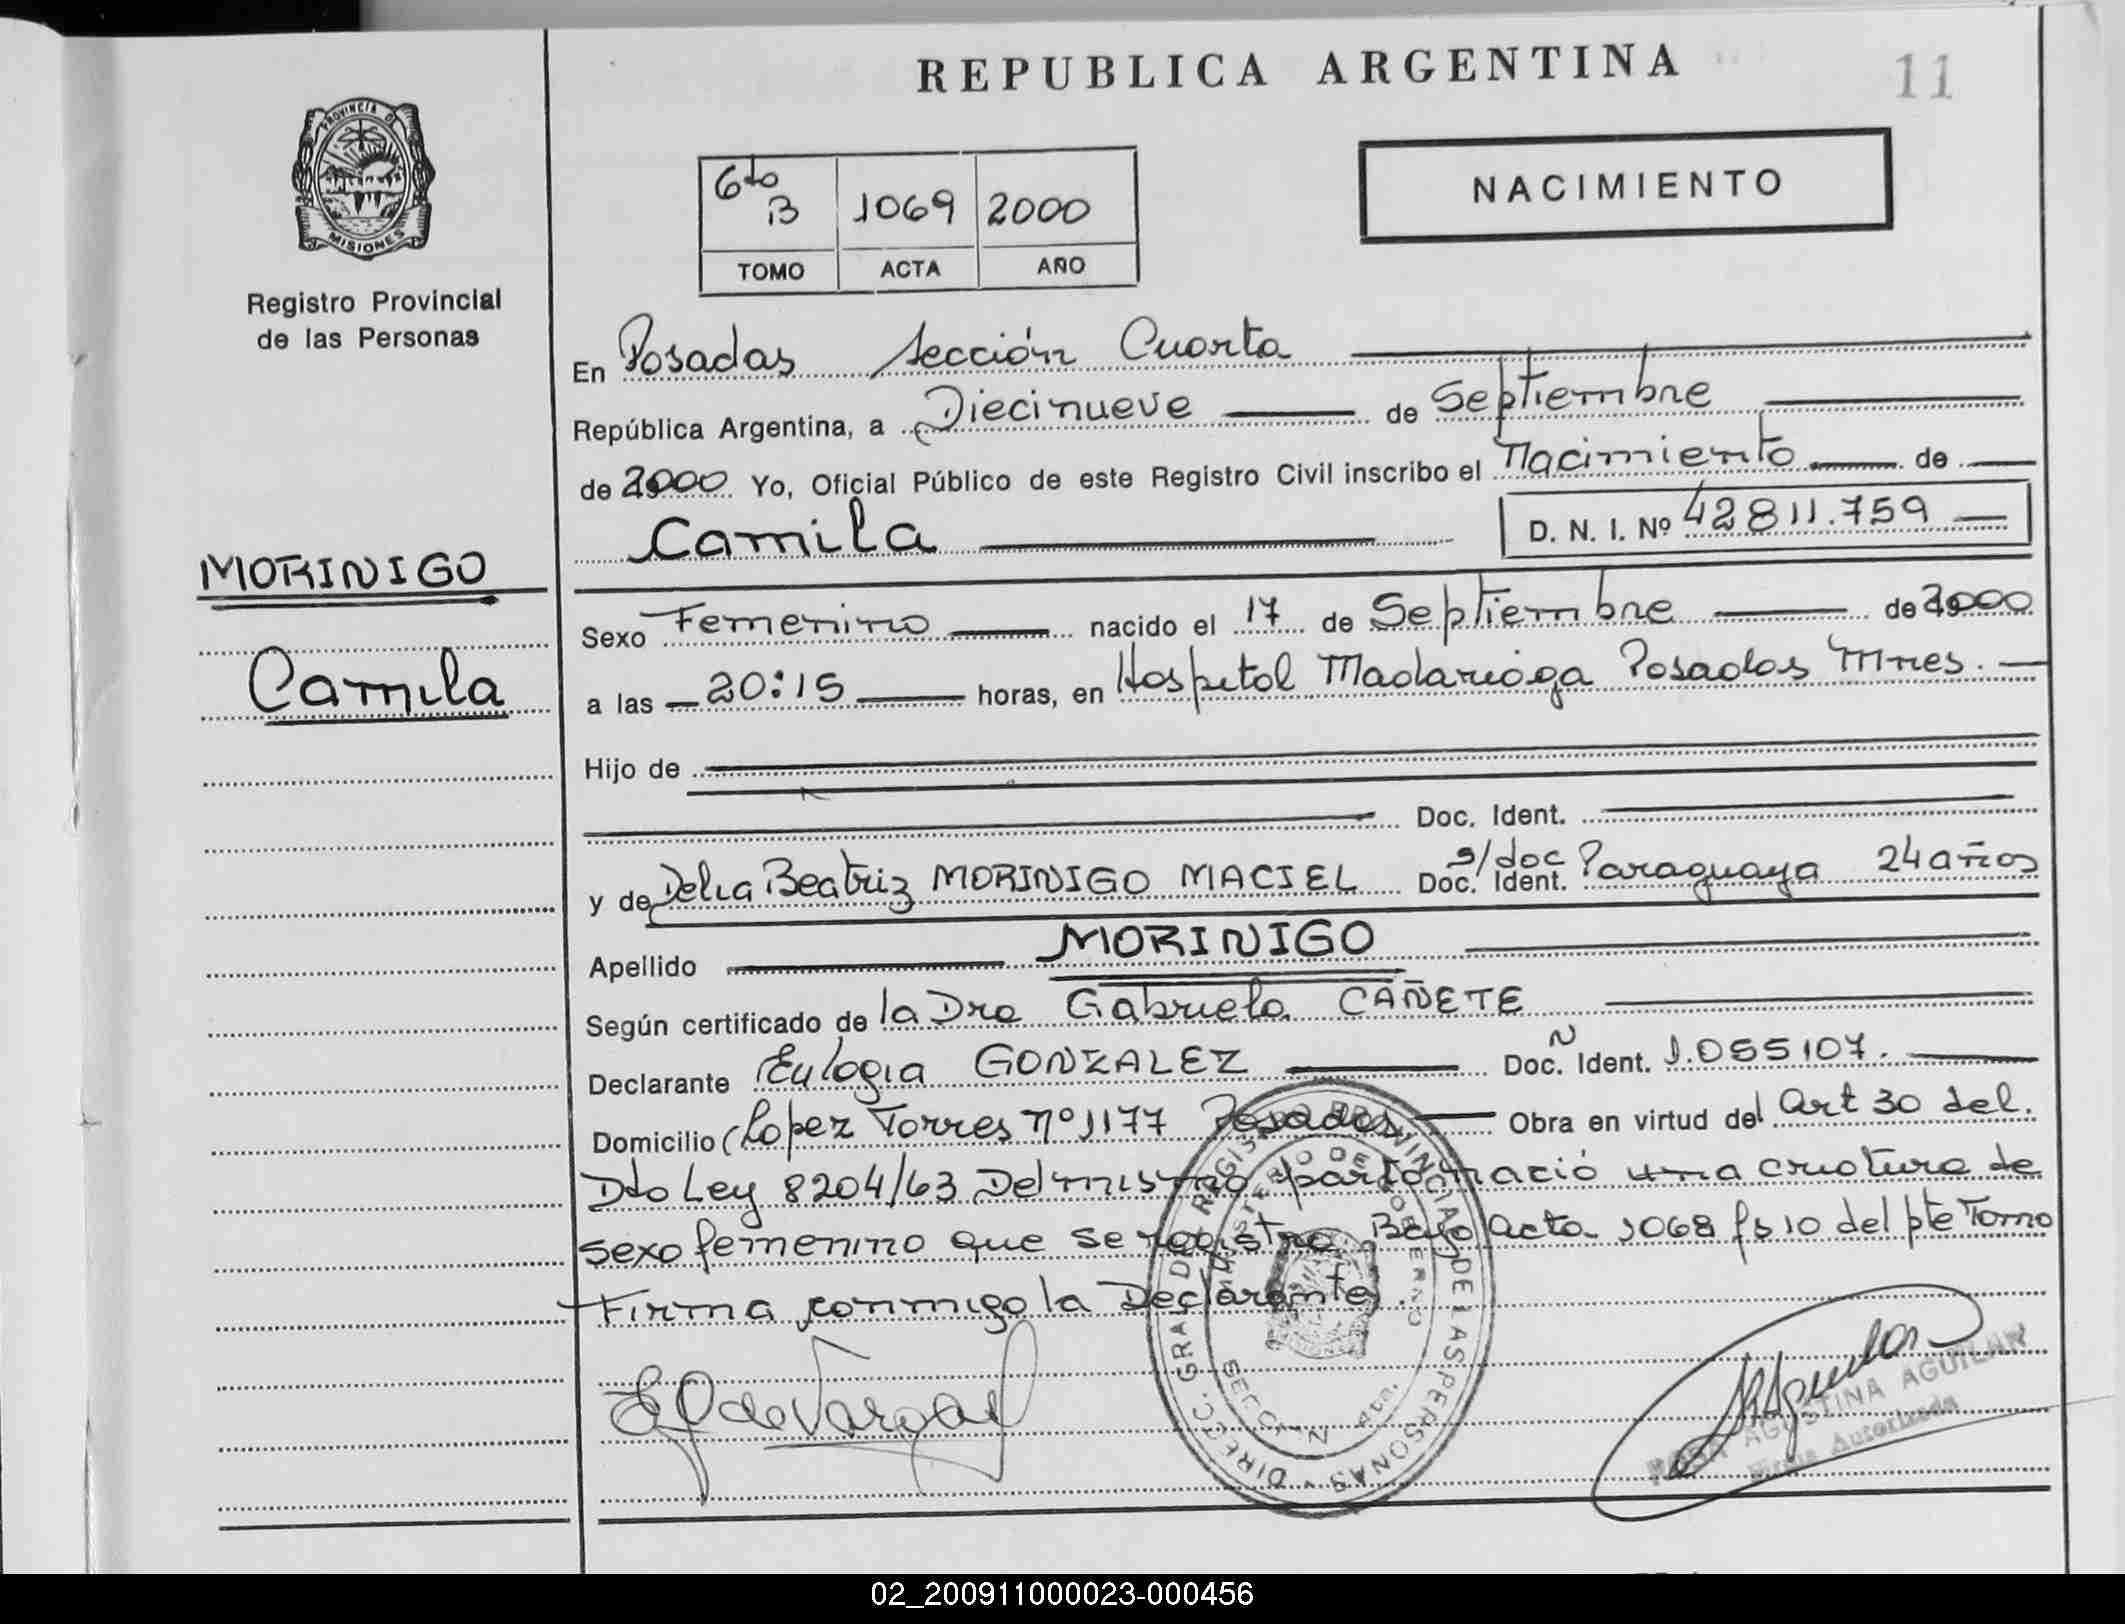 REPUBLICA ARGENTINA
11
PROVINCIA DE
MISIONES
Registro Provincial
de las Personas
6to B 1069 2000
TOMO ACTA AÑO
NACIMIENTO
En Posadas Sección Cuarta
República Argentina, a Diecinueve de Septiembre
de 2000 Yo, Oficial Público de este Registro Civil inscribo el Nacimiento de
Camila D. N. I. Nº 42811.759
MORINIGO
Camila
Sexo Femenino nacido el 17 de Septiembre de 2000
a las 20:15 horas, en Hospital Madariaga Posadas Mnes.
Hijo de
Doc. Ident.
y de Delia Beatriz MORINIGO MACIEL s/doc Doc. Ident. Paraguaya 24 años
Apellido MORINIGO
Según certificado de la Dra Gabriela CAÑETE
Declarante Eulogia GONZALEZ Doc. N Ident. 1.055107.
Domicilio Lopez Torres nº 1177 Posadas Obra en virtud del Art 30 del.
Dto Ley 8204/63 Del mismo parto nació una criatura de
sexo femenino que se registra Bajo Acta 1068 fs 10 del pte Tomo
Firma conmigo la Declarante.
DIRECC. GRAL. DE REGISTRO PROVINCIAL DE LAS PERSONAS
MINISTERIO DE GOBIERNO
SECCION 4ta.
ROSA AGUSTINA AGUILAR
Firma Autorizada
02_200911000023-000456